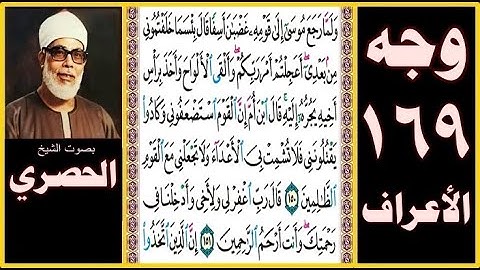 وجه
١٦٩
الأعراف
وَلَمَّا رَجَعَ مُوسَىٰٓ إِلَىٰ قَوْمِهِۦ غَضْبَٰنَ أَسِفًا قَالَ بِئْسَمَا خَلَفْتُمُونِى
مِنۢ بَعْدِىٓ أَعَجِلْتُمْ أَمْرَ رَبِّكُمْ وَأَلْقَى ٱلْأَلْوَاحَ وَأَخَذَ بِرَأْسِ
أَخِيهِ يَجُرُّهُۥٓ إِلَيْهِ قَالَ ٱبْنَ أُمَّ إِنَّ ٱلْقَوْمَ ٱسْتَضْعَفُونِى وَكَادُوا۟
يَقْتُلُونَنِى فَلَا تُشْمِتْ بِىَ ٱلْأَعْدَآءَ وَلَا تَجْعَلْنِى مَعَ ٱلْقَوْمِ
ٱلظَّٰلِمِينَ ١٥٠ قَالَ رَبِّ ٱغْفِرْ لِى وَلِأَخِى وَأَدْخِلْنَا فِى
رَحْمَتِكَ وَأَنتَ أَرْحَمُ ٱلرَّٰحِمِينَ ١٥١ إِنَّ ٱلَّذِينَ ٱتَّخَذُوا۟
بصوت الشيخ
الحصري